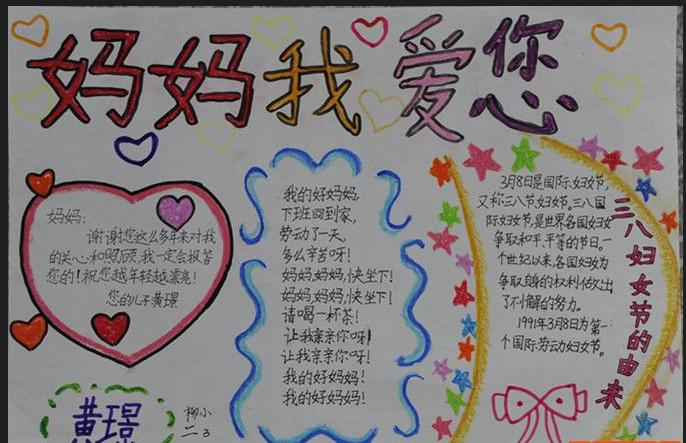 妈妈我爱您
妈妈:
谢谢您这么多年来对我
的关心和照顾,我一定会报答
您的!祝您越年轻越漂亮!
您的儿子黄璟
黄璟
柳小
二3
我的好妈妈,
下班回到家,
劳动了一天,
多么辛苦呀!
妈妈,妈妈,快坐下!
妈妈,妈妈,快坐下!
请喝一杯茶!
让我亲亲你呀!
让我亲亲你呀!
我的好妈妈!
我的好妈妈!
3月8日是国际妇女节,
又称三八节妇女节。三八国
际妇女节,是世界各国妇女
争取和平、平等的节日。一
个世纪以来,各国妇女为
争取自身的权利做出
了不懈的努力。
1991年3月8日为第一
个国际劳动妇女节。
三八妇女节的由来